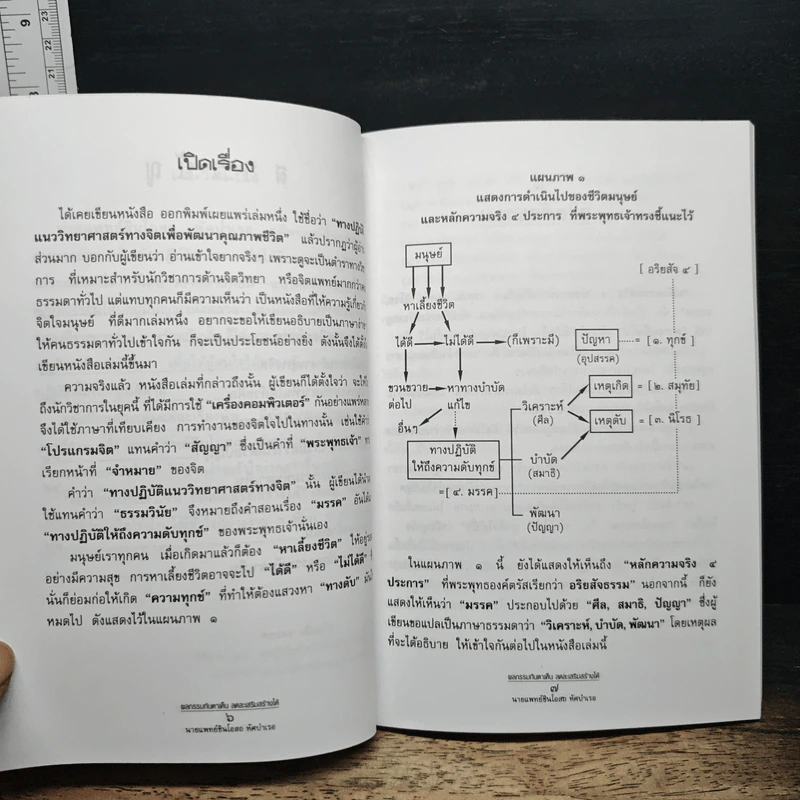 เปิดเรื่อง
ได้เคยเขียนหนังสือ ออกพิมพ์เผยแพร่เล่มหนึ่ง ใช้ชื่อว่า "ทางปฏิบัติ
แนววิทยาศาสตร์ทางจิตเพื่อพัฒนาคุณภาพชีวิต" แล้วปรากฏว่าผู้อ่าน
ส่วนมาก บอกกับผู้เขียนว่า อ่านเข้าใจยากจริงๆ เพราะดูจะเป็นตำราทางวิช
การ ที่เหมาะสำหรับนักวิชาการด้านจิตวิทยา หรือจิตแพทย์มากกว่าค
ธรรมดาทั่วไป แต่แทบทุกคนก็มีความเห็นว่า เป็นหนังสือที่ให้ความรู้เกี่ยวกั
จิตใจมนุษย์ ที่ดีมากเล่มหนึ่ง อยากจะขอให้เขียนอธิบายเป็นภาษาง่าย
ให้คนธรรมดาทั่วไปเข้าใจกัน ก็จะเป็นประโยชน์อย่างยิ่ง ดังนั้นจึงได้ตั้ง
เขียนหนังสือเล่มนี้ขึ้นมา
ความจริงแล้ว หนังสือเล่มที่กล่าวถึงนั้น ผู้เขียนก็ได้ตั้งใจว่า จะให้
ถึงนักวิชาการในยุคนี้ ที่ได้มีการใช้ "เครื่องคอมพิวเตอร์" กันอย่างแพร่หลาย
จึงได้ใช้ภาษาที่เทียบเคียง การทำงานของจิตใจไปในทางนั้น เช่นใช้คำ
"โปรแกรมจิต" แทนคำว่า "สัญญา" ซึ่งเป็นคำที่ "พระพุทธเจ้า" ท
เรียกหน้าที่ "จำหมาย" ของจิต
คำว่า "ทางปฏิบัติแนววิทยาศาสตร์ทางจิต" นั้น ผู้เขียนได้นำ
ใช้แทนคำว่า "ธรรมวินัย" จึงหมายถึงคำสอนเรื่อง "มรรค" อันได้แ
"ทางปฏิบัติให้ถึงความดับทุกข์" ของพระพุทธเจ้านั่นเอง
มนุษย์เราทุกคน เมื่อเกิดมาแล้วก็ต้อง "หาเลี้ยงชีวิต" ให้อยู่
อย่างมีความสุข การหาเลี้ยงชีวิตอาจจะไป "ได้ดี" หรือ "ไม่ได้ดี"
นั่นก็ย่อมก่อให้เกิด "ความทุกข์" ที่ทำให้ต้องแสวงหา "ทางดับ" มัน
หมดไป ดังแสดงไว้ในแผนภาพ ๑
ผลกรรมทันตาเห็น ลดละเสริมสร้างได้
๖
นายแพทย์ชินโอสถ หัศบำเรอ
แผนภาพ ๑
แสดงการดำเนินไปของชีวิตมนุษย์
และหลักความจริง ๔ ประการ ที่พระพุทธเจ้าทรงชี้แนะไว้
มนุษย์
[ อริยสัจ ๔ ]
หาเลี้ยงชีวิต
ได้ดี ไม่ได้ดี (ก็เพราะมี) ปัญหา = [ ๑. ทุกข์ ]
(อุปสรรค)
ขวนขวาย หาทางบำบัด เหตุเกิด = [ ๒. สมุทัย]
ต่อไป แก้ไข วิเคราะห์
(ศีล) เหตุดับ = [ ๓. นิโรธ ]
อื่นๆ
ทางปฏิบัติ
ให้ถึงความดับทุกข์ บำบัด
(สมาธิ)
=[ ๔. มรรค ]
พัฒนา
(ปัญญา)
ในแผนภาพ ๑ นี้ ยังได้แสดงให้เห็นถึง "หลักความจริง ๔
ประการ" ที่พระพุทธองค์ตรัสเรียกว่า อริยสัจธรรม" นอกจากนี้ ก็ยัง
แสดงให้เห็นว่า "มรรค" ประกอบไปด้วย "ศีล, สมาธิ, ปัญญา" ซึ่งผู้
เขียนขอแปลเป็นภาษาธรรมดาว่า "วิเคราะห์, บำบัด, พัฒนา" โดยเหตุผล
ที่จะได้อธิบาย ให้เข้าใจกันต่อไปในหนังสือเล่มนี้
ผลกรรมทันตาเห็น ลดละเสริมสร้างได้
๗
นายแพทย์ชินโอสถ หัศบำเรอ